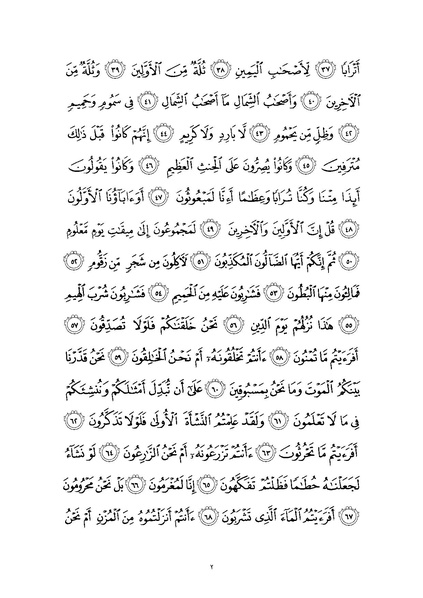 أَتْرَابًا ٣٧ لِأَصْحَابِ الْيَمِينِ ٣٨ ثُلَّةٌ مِّنَ الْأَوَّلِينَ ٣٩ وَثُلَّةٌ مِّنَ
الْآخِرِينَ ٤٠ وَأَصْحَابُ الشِّمَالِ مَا أَصْحَابُ الشِّمَالِ ٤١ فِي سَمُومٍ وَحَمِيمٍ
٤٢ وَظِلٍّ مِّن يَحْمُومٍ ٤٣ لَّا بَارِدٍ وَلَا كَرِيمٍ ٤٤ إِنَّهُمْ كَانُوا قَبْلَ ذَٰلِكَ
مُتْرَفِينَ ٤٥ وَكَانُوا يُصِرُّونَ عَلَى الْحِنثِ الْعَظِيمِ ٤٦ وَكَانُوا يَقُولُونَ
أَئِذَا مِتْنَا وَكُنَّا تُرَابًا وَعِظَامًا أَءِنَّا لَمَبْعُوثُونَ ٤٧ أَوَءَابَاؤُنَا الْأَوَّلُونَ
٤٨ قُلْ إِنَّ الْأَوَّلِينَ وَالْآخِرِينَ ٤٩ لَمَجْمُوعُونَ إِلَىٰ مِيقَاتِ يَوْمٍ مَّعْلُومٍ
٥٠ ثُمَّ إِنَّكُمْ أَيُّهَا الضَّالُّونَ الْمُكَذِّبُونَ ٥١ لَآكِلُونَ مِن شَجَرٍ مِّن زَقُّومٍ ٥٢
فَمَالِئُونَ مِنْهَا الْبُطُونَ ٥٣ فَشَارِبُونَ عَلَيْهِ مِنَ الْحَمِيمِ ٥٤ فَشَارِبُونَ شُرْبَ الْهِيمِ
٥٥ هَٰذَا نُزُلُهُمْ يَوْمَ الدِّينِ ٥٦ نَحْنُ خَلَقْنَاكُمْ فَلَوْلَا تُصَدِّقُونَ ٥٧
أَفَرَءَيْتُم مَّا تُمْنُونَ ٥٨ ءَأَنتُمْ تَخْلُقُونَهُ أَمْ نَحْنُ الْخَالِقُونَ ٥٩ نَحْنُ قَدَّرْنَا
بَيْنَكُمُ الْمَوْتَ وَمَا نَحْنُ بِمَسْبُوقِينَ ٦٠ عَلَىٰ أَن نُّبَدِّلَ أَمْثَالَكُمْ وَنُنشِئَكُمْ
فِي مَا لَا تَعْلَمُونَ ٦١ وَلَقَدْ عَلِمْتُمُ النَّشْأَةَ الْأُولَىٰ فَلَوْلَا تَذَكَّرُونَ ٦٢
أَفَرَءَيْتُم مَّا تَحْرُثُونَ ٦٣ ءَأَنتُمْ تَزْرَعُونَهُ أَمْ نَحْنُ الزَّارِعُونَ ٦٤ لَوْ نَشَاءُ
لَجَعَلْنَاهُ حُطَامًا فَظَلْتُمْ تَفَكَّهُونَ ٦٥ إِنَّا لَمُغْرَمُونَ ٦٦ بَلْ نَحْنُ مَحْرُومُونَ
٦٧ أَفَرَءَيْتُمُ الْمَاءَ الَّذِي تَشْرَبُونَ ٦٨ ءَأَنتُمْ أَنزَلْتُمُوهُ مِنَ الْمُزْنِ أَمْ نَحْنُ
٢